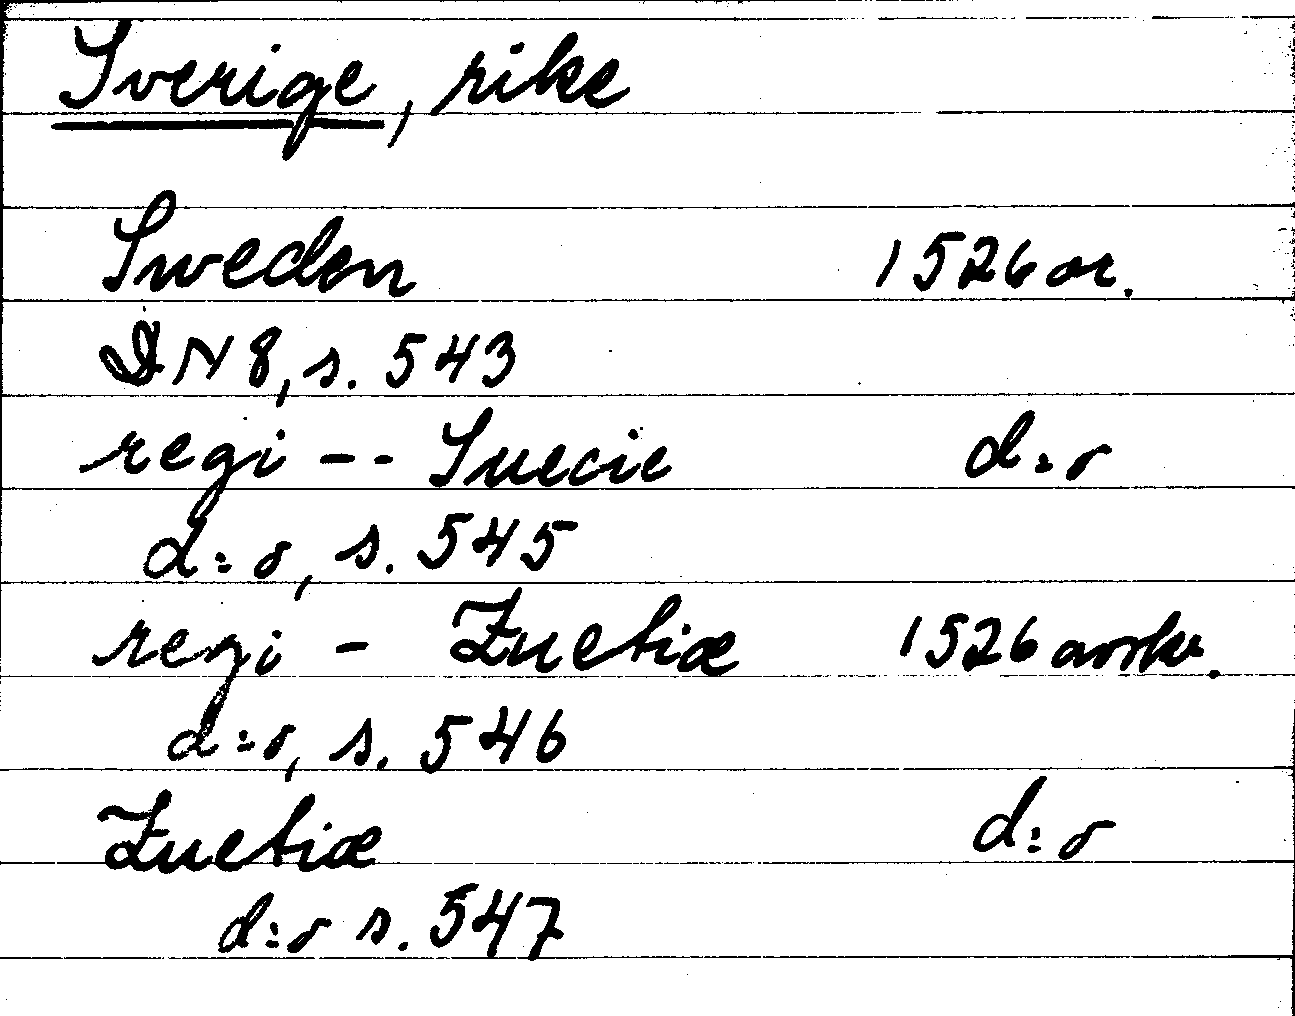 Sverige, rike
Sweden 1526 or.
DN 8, s. 543
regi -- Suecie d:o
d:o, s. 545
regi - Zuetiæ 1526 avskr.
d:o, s. 546
Zuetiæ d:o
d:o s. 547